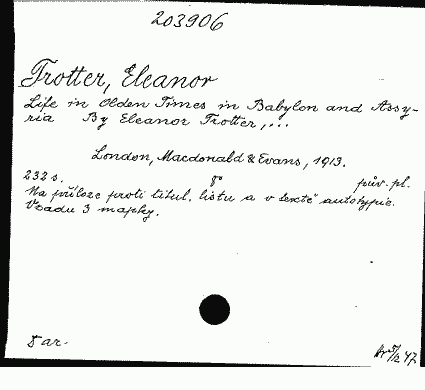 203906
Trotter, Eleanor
Life in Olden Times in Babylon and Assy-
ria By Eleanor Trotter, ...
London, Macdonald & Evans, 1913.
232 s. 8° pův. pl.
Na příloze proti titul. listu a v textě autotypie.
Vzadu 3 mapky.
5 ar.